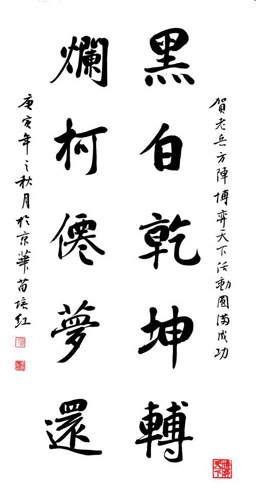 賀老兵方陣博弈天下活動圓滿成功
黑白乾坤轉
爛柯僊夢還
庚寅年之秋月於京華苗培红